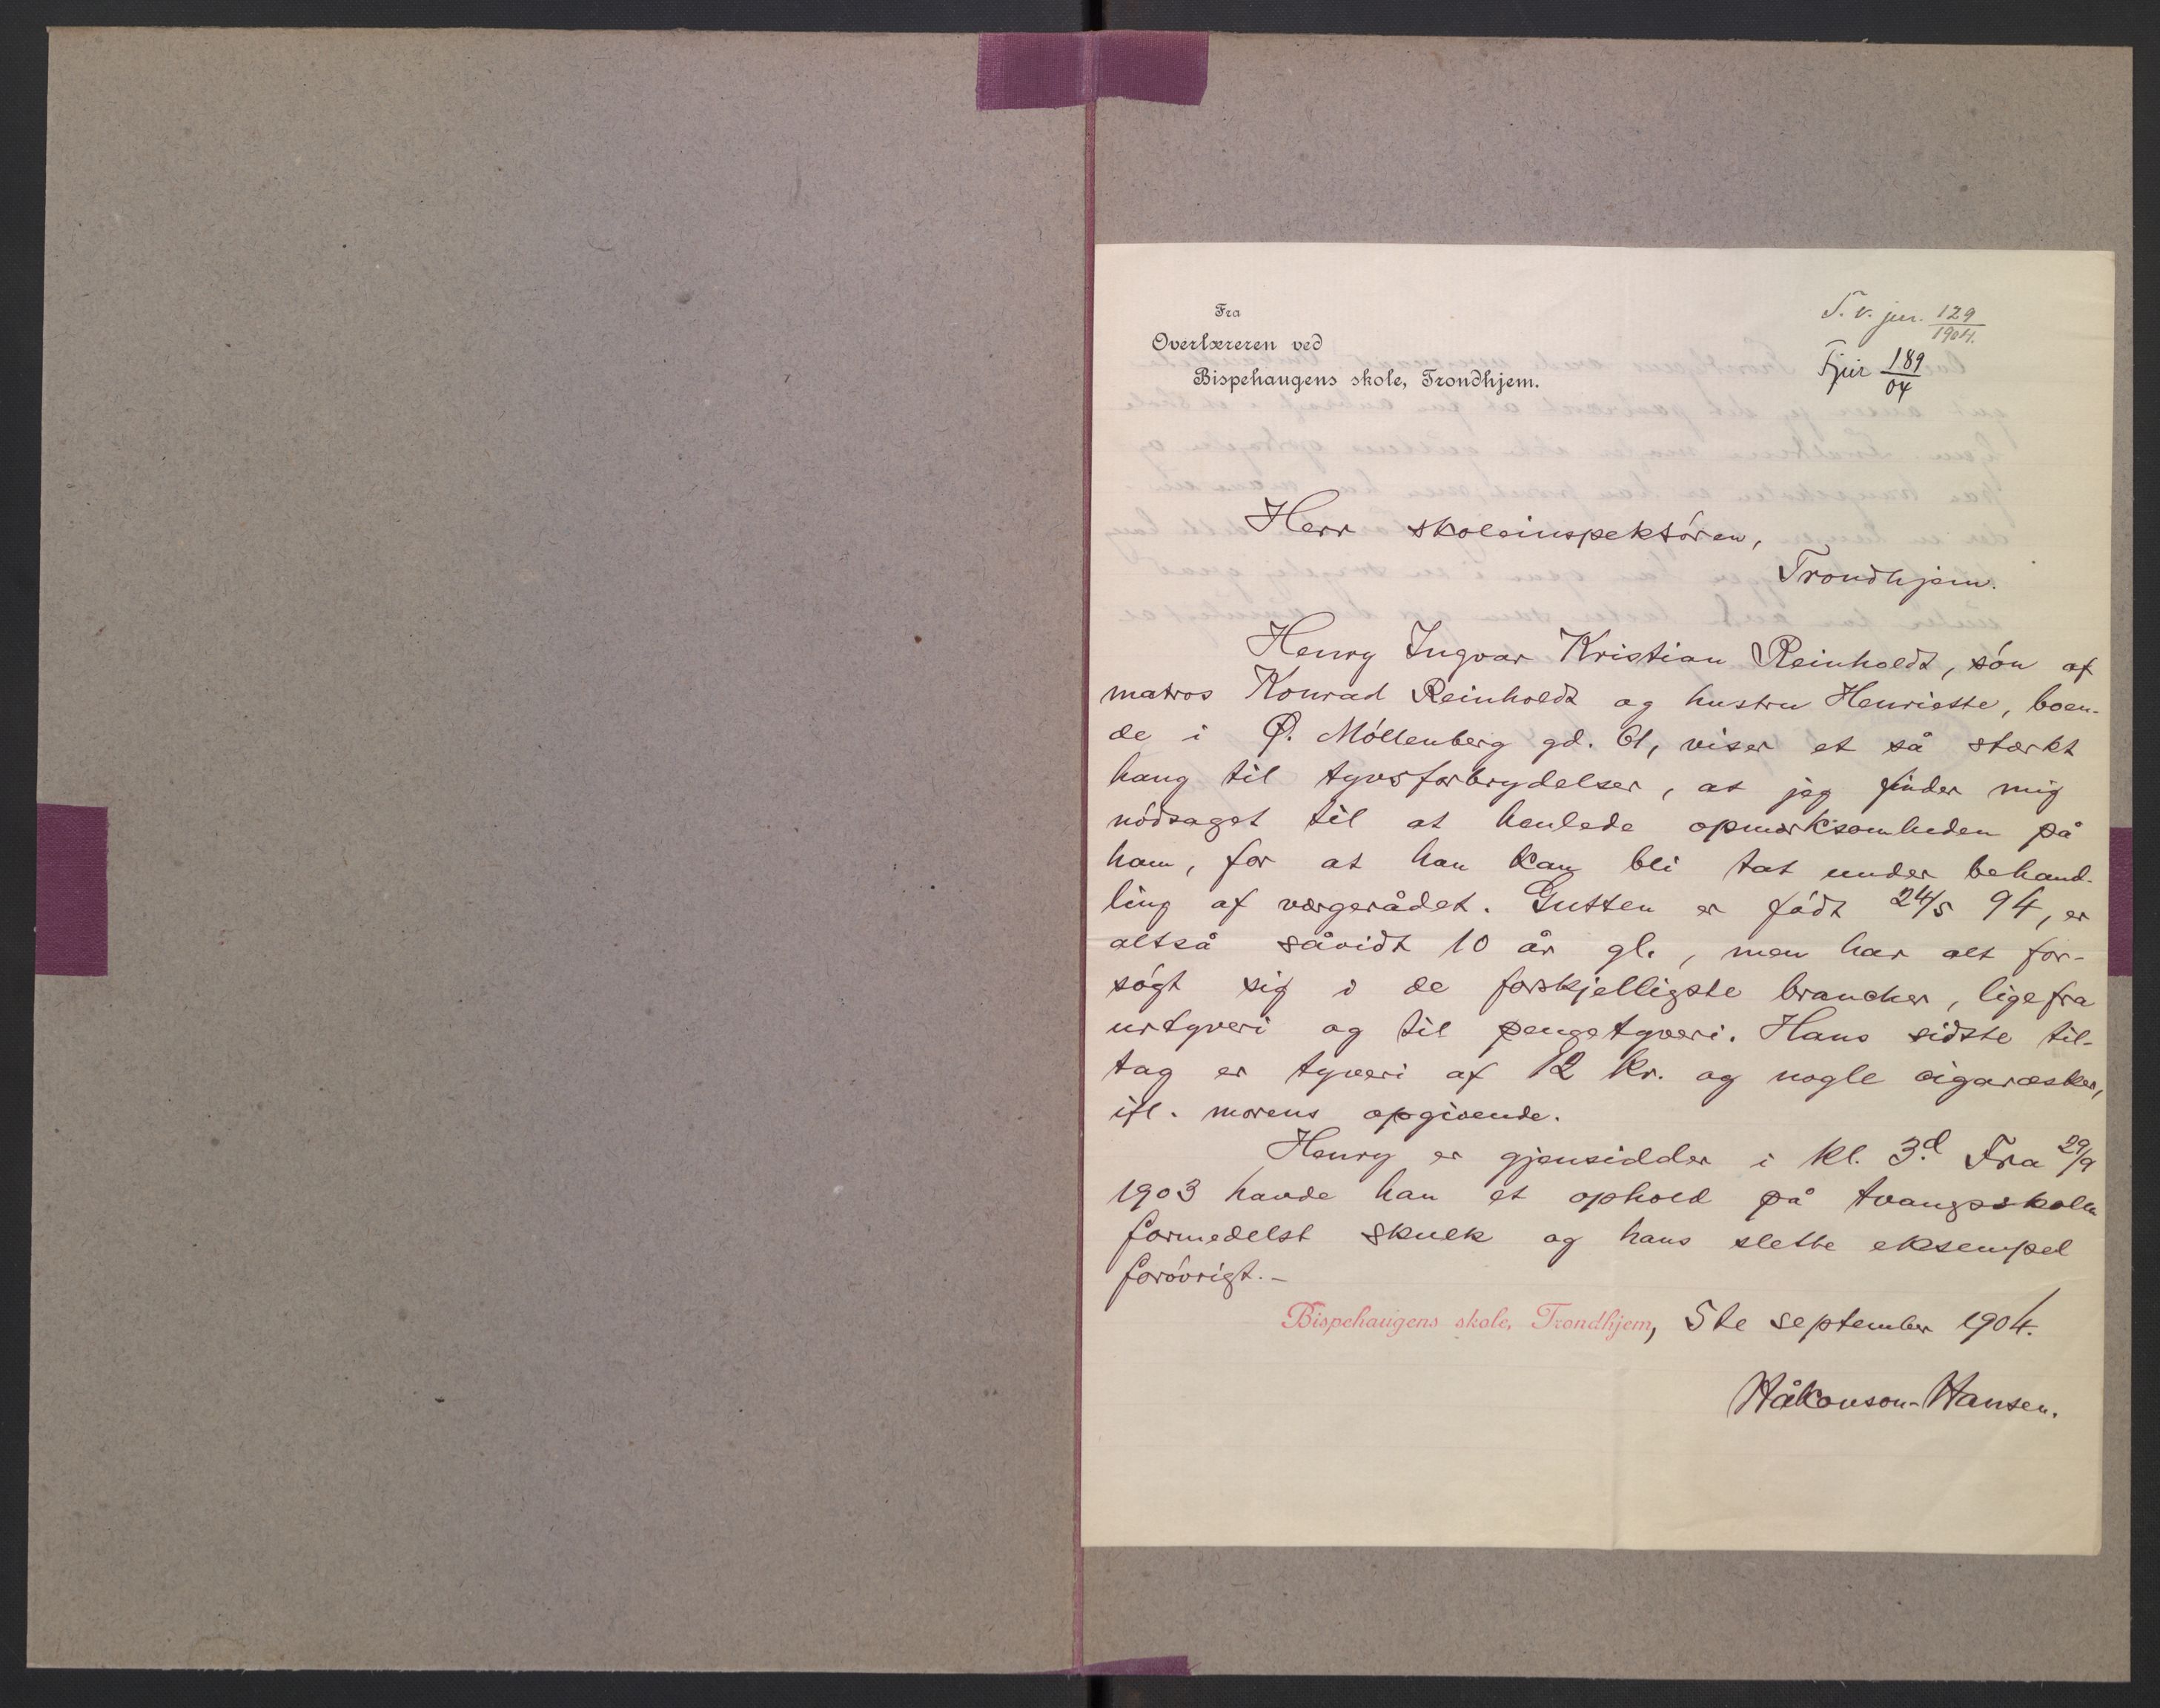 Fra
Overlæreren ved
Bispehaugens skole, Trondhjem.
T. v. jur. 129/1904.
Fjur 189/04
Herr skoleinspektören,
Trondhjem.
Henry Ingvar Kristian Reinholdt, sön af
matros Konrad Reinholdt og hustru Henriette, boen-
de i Ø. Möllenberg gd. 61, viser et så stærkt
hang til tyvsforbrydelser, at jeg finder mig
nödsaget til at henlede opmærksomheden på
ham, for at han kan bli tat under behand-
ling af værgerådet. Gutten er födt 24/5 94, er
altså såvidt 10 år gl., men har alt for-
sögt sig i de forskjelligste brancher, lige fra
urtyveri og til pengetyveri. Hans sidste til-
tag er tyveri af 12 kr. og nogle cigaræsker,
ifl. morens opgivende.
Henry er gjensidder i kl. 3.d Fra 29/9
1903 havde han et ophold på tvangsskolen
formedelst skulk og hans slette eksempel
forövrigt. –
Bispehaugens skole, Trondhjem, 5te september 1904.
Håkonson-Hansen.